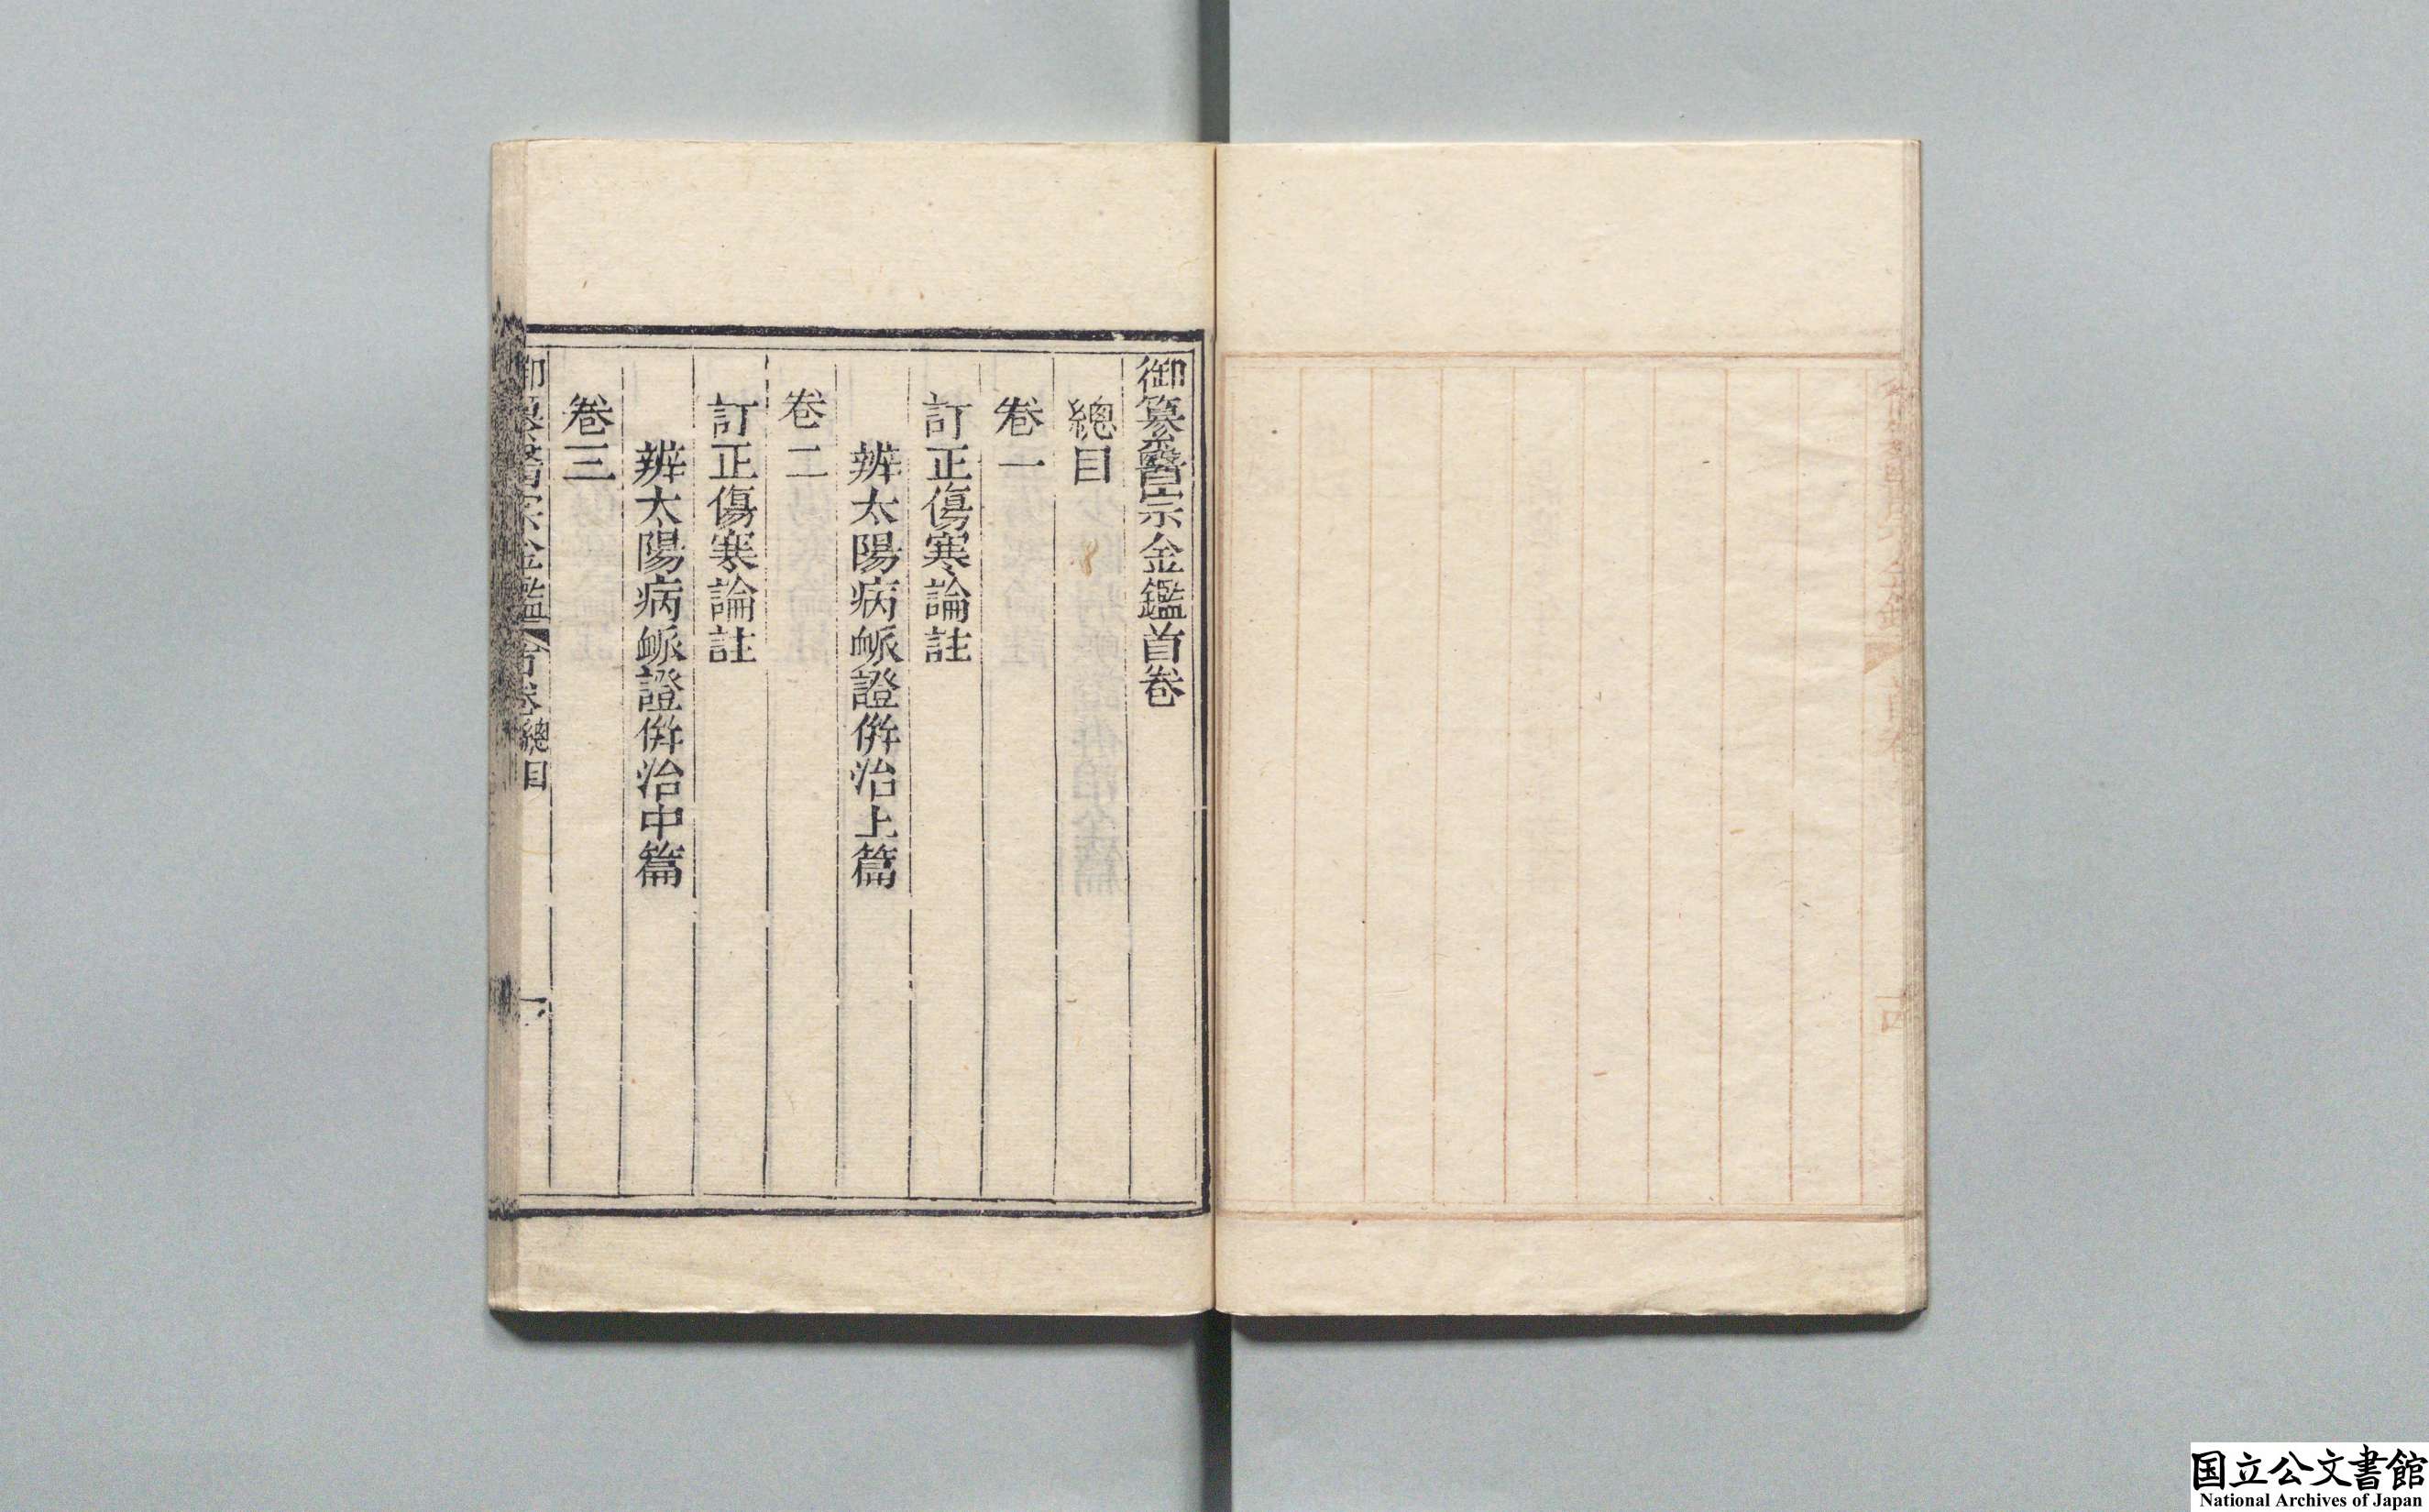 御纂醫宗金鑑首卷
總目
卷一
訂正傷寒論註
辨太陽病脈證倂治上篇
卷二
訂正傷寒論註
辨太陽病脈證倂治中篇
卷三
御纂醫宗金鑑 首卷 總目
一
国立公文書館
National Archives of Japan